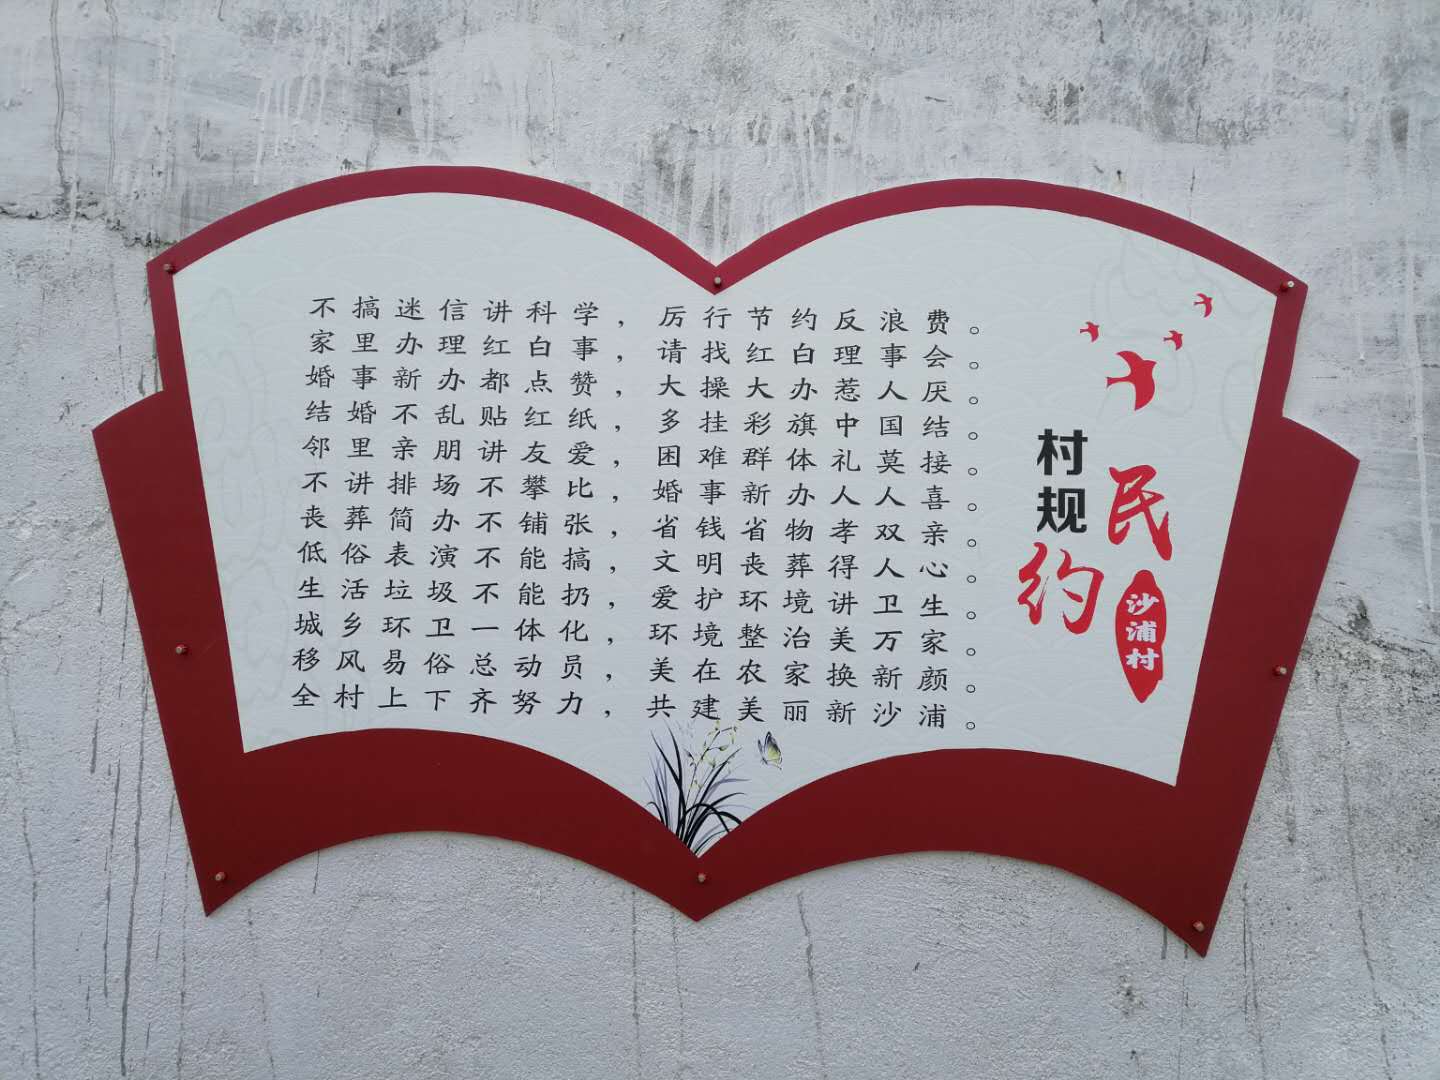 不搞迷信讲科学，厉行节约反浪费。
家里办理红白事，请找红白理事会。
婚事新办都点赞，大操大办惹人厌。
结婚不乱贴红纸，多挂彩旗中国结。
邻里亲朋讲友爱，困难群体礼莫接。
不讲排场不攀比，婚事新办人人喜。
丧葬简办不铺张，省钱省物孝双亲。
低俗表演不能搞，文明丧葬得人心。
生活垃圾不能扔，爱护环境讲卫生。
城乡环卫一体化，环境整治美万家。
移风易俗总动员，美在农家换新颜。
全村上下齐努力，共建美丽新沙浦。
村规
民约
沙浦村